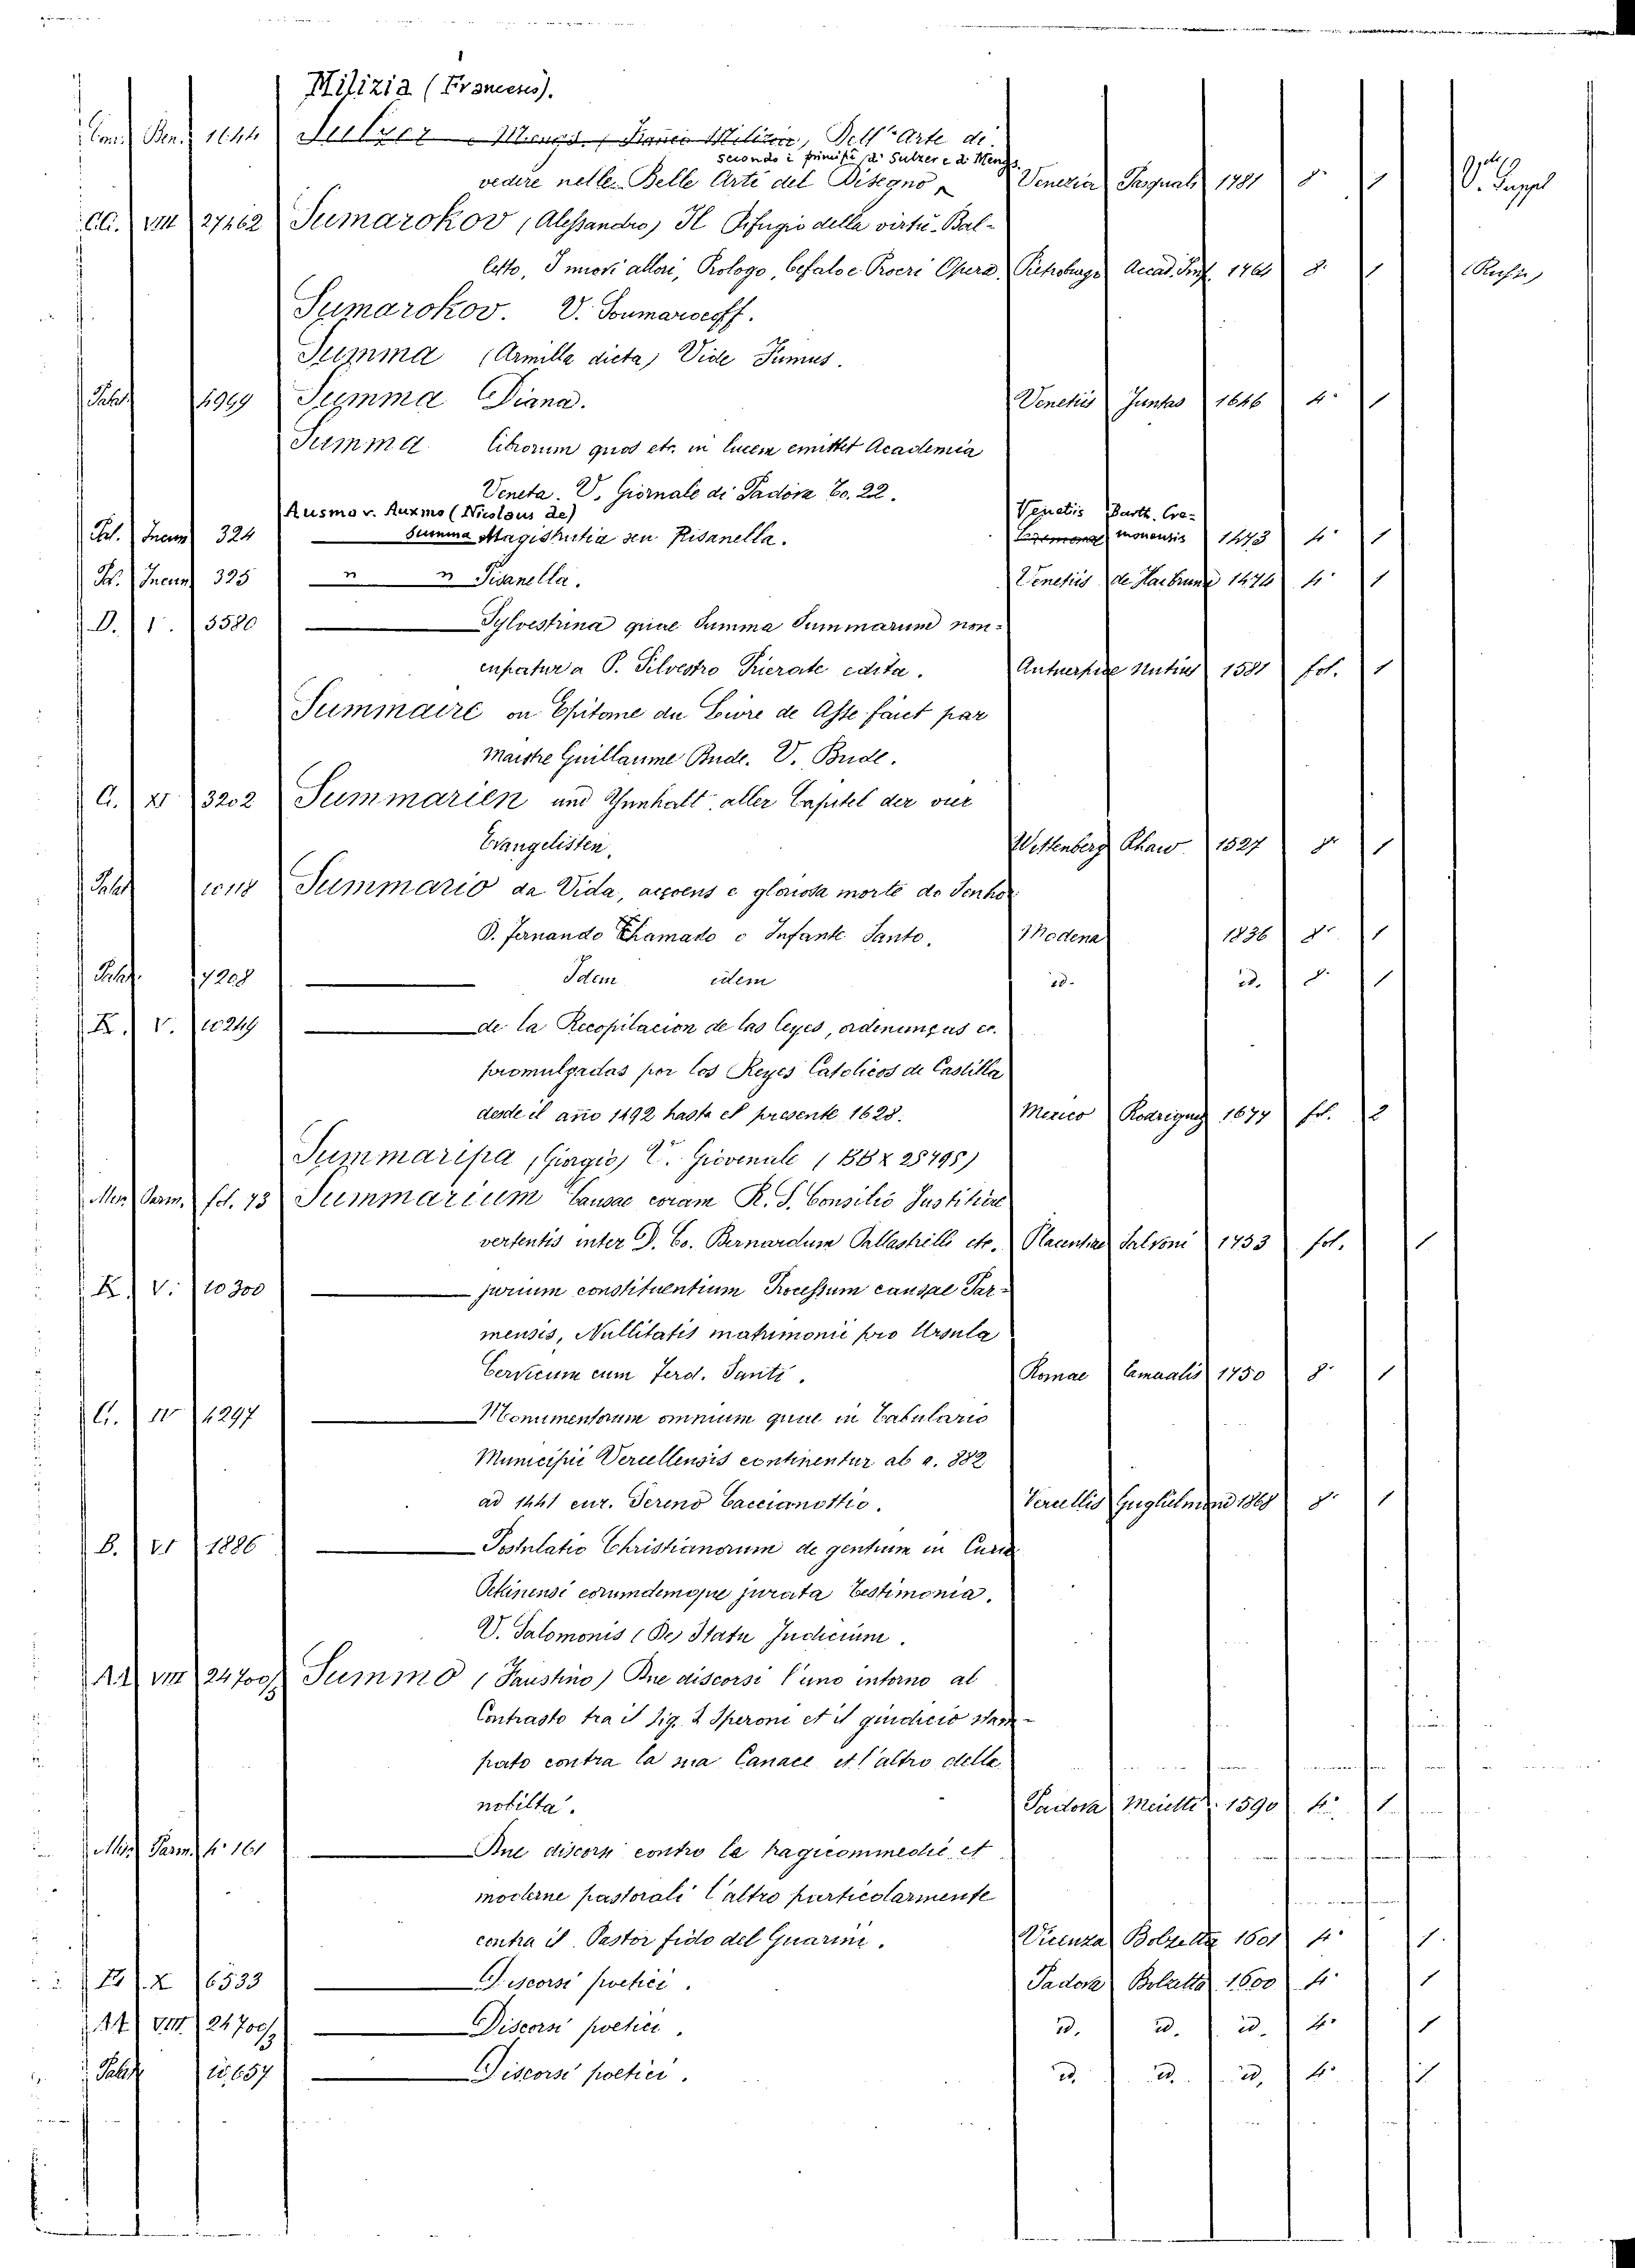 Milizia (Francesco).
Com. Ben. 1644 Sulzer, Mengs, Franco Milizia, Dell'Arte di
secondo i principi di Sulzer e di Mengs.
vedere nelle Belle Arti del Disegno Venezia Pasquali 1781 8° 1 V. Suppl
CC. VIII 27462 Sumarokov (Alessandro) Il Rifugio della virtù. Bal-
letto, I nuovi allori, Prologo, Cefalo e Procri Opera. Pietroburgo Accad. Imp. 1764 8° 1
Sumarokov. V. Soumarocoff.
Summa (Armilla dicta) Vide Fumus.
Palat. 4969 Summa Diana. Venetiis Juntas 1646 4° 1
Summa librorum quos etc. in lucem emittet Academia
Veneta. V. Giornale di Padova To. 22.
Ausmo v. Auxmo (Nicolaus de) Venetiis Barth. Cre-
Inc. 324 Summa Magistrutia seu Pisanella. monensis 1473 4° 1
Incun 325 " " Pisanella. Venetiis de Harbrun 1474 4° 1
D. I. 5580 Sylvestrina quae Summa Summarum nun-
cupatur a P. Silvestro Prierate edita. Antuerpiae Nutius 1581 fol. 1
Summaire ou Epitome du Livre de Asse faict par
Maistre Guillaume Bude. V. Bude.
A. XI 3202 Summarien und Ynnhalt aller Capitel der vier
Evangelisten. Wittenberg Rhaw 1527 8° 1
Palat Summario da Vida, accoens e gloriosa morte do Senhor
D. Fernando Chamado o Infante Santo. Modena 1836 8° 1
Palat. 7208 Idem idem id. id. 8° 1
K. V. 10249 de la Recopilacion de las leyes, ordenanças ec.
promulgadas por los Reyes Catolicos de Castilla
desde il año 1492 hasta el presente 1628. Mexico Rodriguez 1677 fol. 2
Summaripa (Giorgio) V. Giovenale (BB X 28495)
Misc. Parm. fol. 73 Summarium Causae coram R. S. Consilio Justitiae
vertentis inter D. Co. Bernardum Pallastrelli etc. Placentiae Salvoni 1753 fol. 1
K. V. 10300 jurium constituentium Processum causae Par-
mensis, Nullitatis matrimonii pro Ursula
cum Ferd. Santi. Romae Camaralis 1750 8° 1
C. IV 4297 Monumentorum omnium quae in Tabulario
Municipii Vercellensis continentur ab a. 882
ad 1441 cur. Sereno Caccianottio. Vercellis Guglielmoni 1868 8° 1
B. VI 1886 Postulatio Christianorum de gentium in Curia
Pekinensi eorumdemque jurata testimonia.
V. Salomonis (De) Statu Judicium.
AA VIII 24700/2 Summo (Faustino) Due discorsi l'uno intorno al
Contrasto tra il Sig. Speroni et il giudicio stam-
pato contra la sua Canace et l'altro della
nobiltà. Padova Meietti 1590 4° 1
Misc. Parm. 4° 161 Due discorsi contro le tragicommedie et
moderne pastorali l'altro particolarmente
contra il Pastor fido del Guarini. Vicenza Bolzetta 1601 4° 1
X 6533 Discorsi poetici. Padova Bolzetta 1600 4° 1
AA VIII 24700/3 Discorsi poetici. id. id. id. 4° 1
Palat 15,657 Discorsi poetici. id. id. id. 4° 1